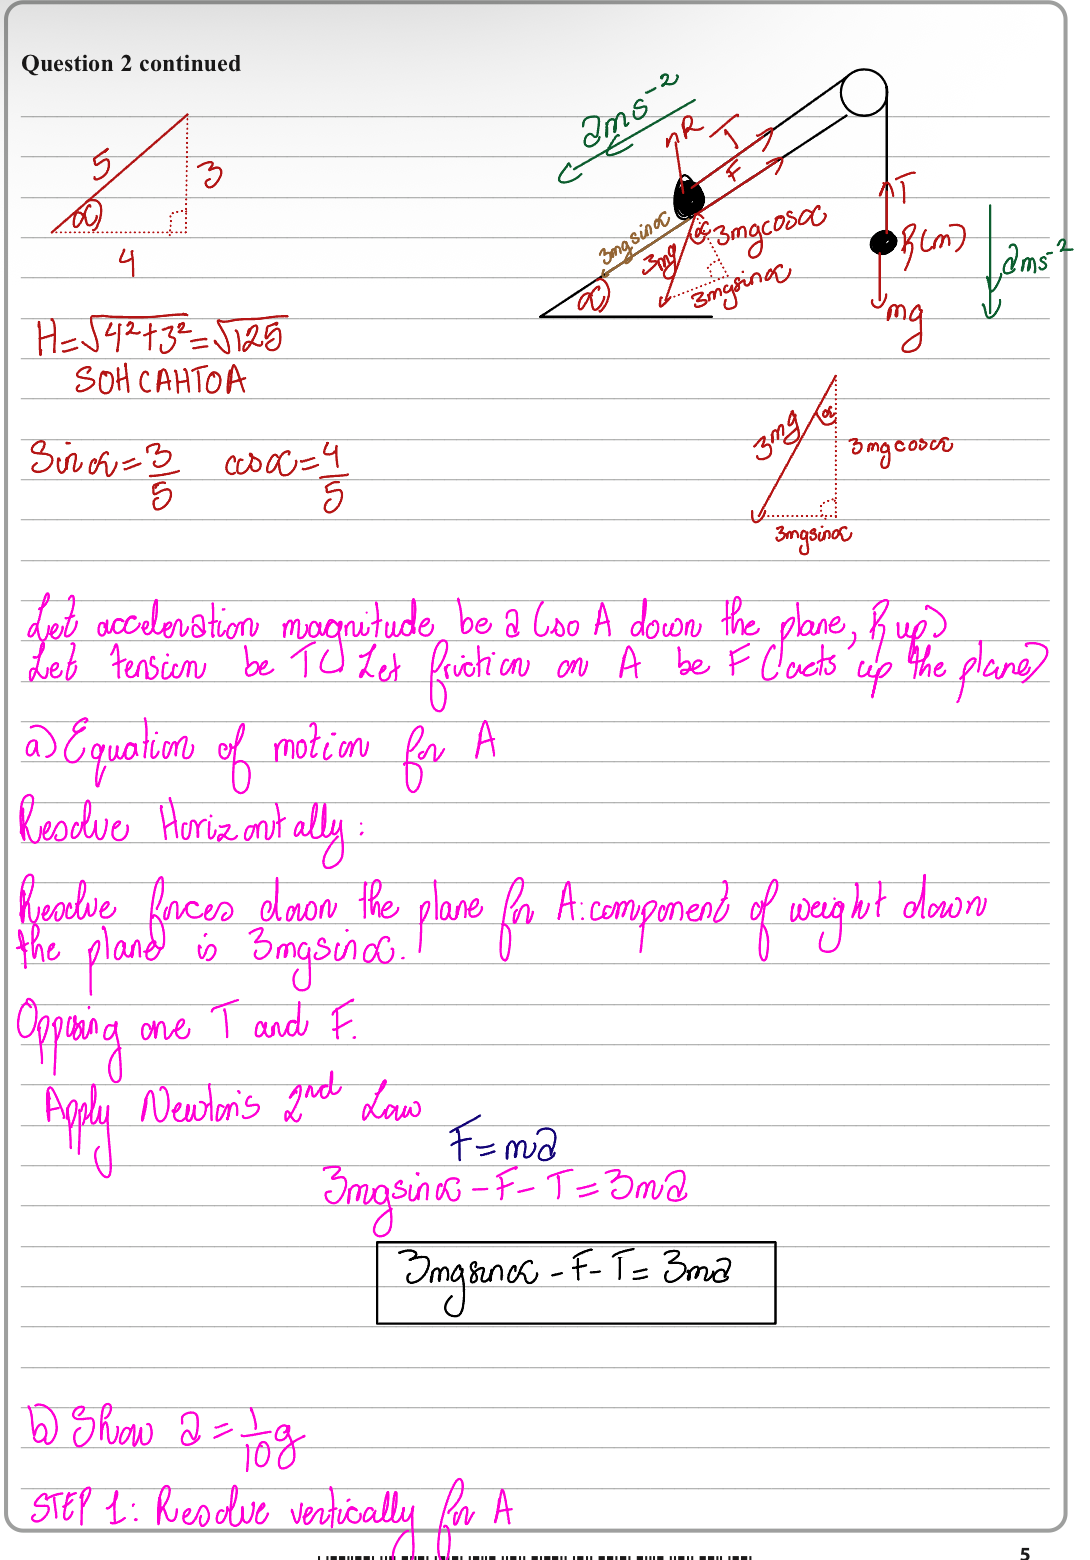 Question 2 continued
5
3
α
4
2ms⁻²
R
T
F
3mgsinα
3mg
α
3mgcosα
3mgsinα
α
T
B(m)
mg
2ms⁻²
H=√4²+3²=√125
SOHCAHTOA
3mg
α
3mgcosα
3mgsinα
Sinα=3/5 cosα=4/5
Let acceleration magnitude be a (so A down the plane, B up)
Let tension be T Let friction on A be F (acts up the plane)
a) Equation of motion for A
Resolve Horizontally:
Resolve forces down the plane for A: component of weight down
the plane is 3mgsinα.
Opposing one T and F.
Apply Newton's 2nd Law
F=ma
3mgsinα-F-T=3ma
3mgsinα-F-T=3ma
b) Show a=1/10g
STEP 1: Resolve vertically for A
5